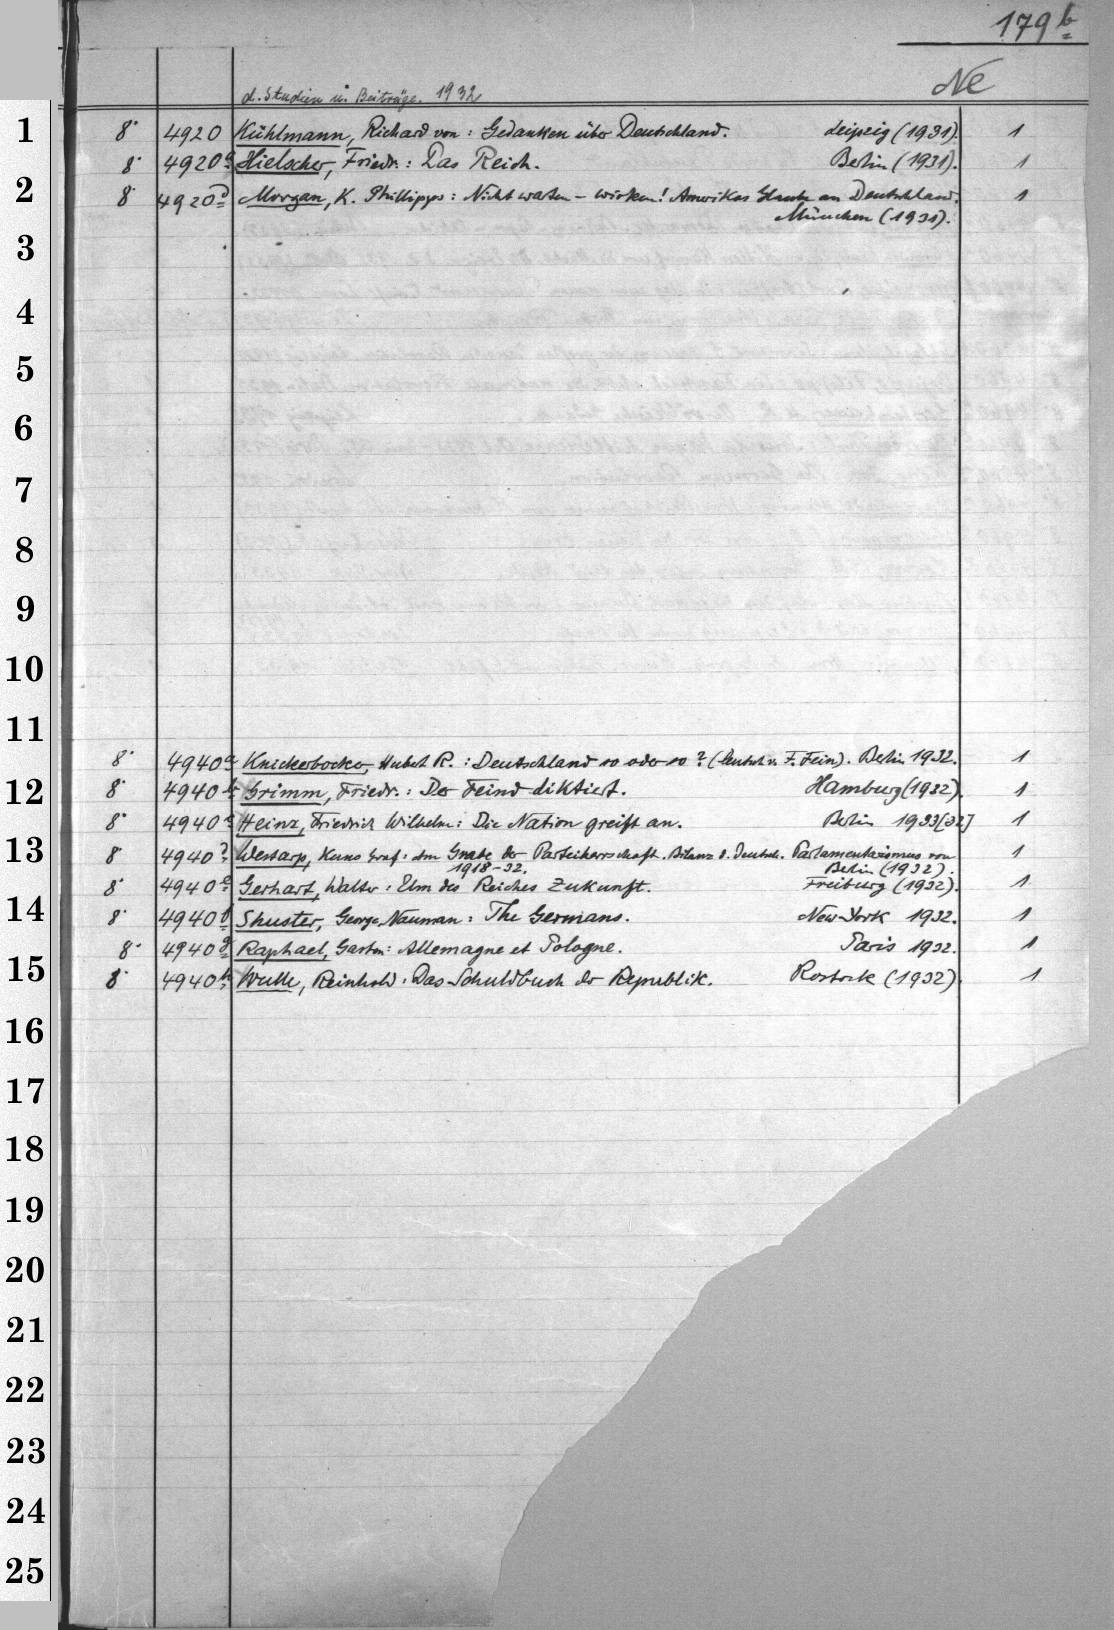 179 b
Ne
d. Studien u. Beiträge. 1932
1 8° 4920 Kühlmann, Richard von: Gedanken über Deutschland. Leipzig (1931). 1
8° 4920 a Hielscher, Friedr.: Das Reich. Berlin (1931). 1
2 8° 4920 Morgan, K. Phillipps: Nicht warten – wirken! Amerikas Glaube an Deutschland. 1
München (1931).
3
4
5
6
7
8
9
10
11
8° 4940 a Knickerbocker, Hubert R.: Deutschland so oder so? (Deutsch v. F. Fein). Berlin 1932. 1
12 8° 4940 b Grimm, Friedr.: Der Feind diktiert. Hamburg (1932). 1
8° 4940 c Heinz, Friedrich Wilhelm: Die Nation greift an. Berlin 1933[32] 1
13 8° 4940 d Westarp, Kuno Graf: Am Grabe der Parteiherrschaft. Bilanz d. Deutsch. Parlamentarismus von 1
1918–32. Berlin (1932).
8° 4940 e Gerhart, Walter: Um des Reiches Zukunft. Freiburg (1932). 1
14 8° 4940 f Shuster, George Nauman: The Germans. New-York 1932. 1
8° 4940 g Raphael, Gaston: Allemagne et Pologne. Paris 1932. 1
15 8° 4940 h Wulle, Reinhold: Das Schuldbuch der Republik. Rostock (1932). 1
16
17
18
19
20
21
22
23
24
25